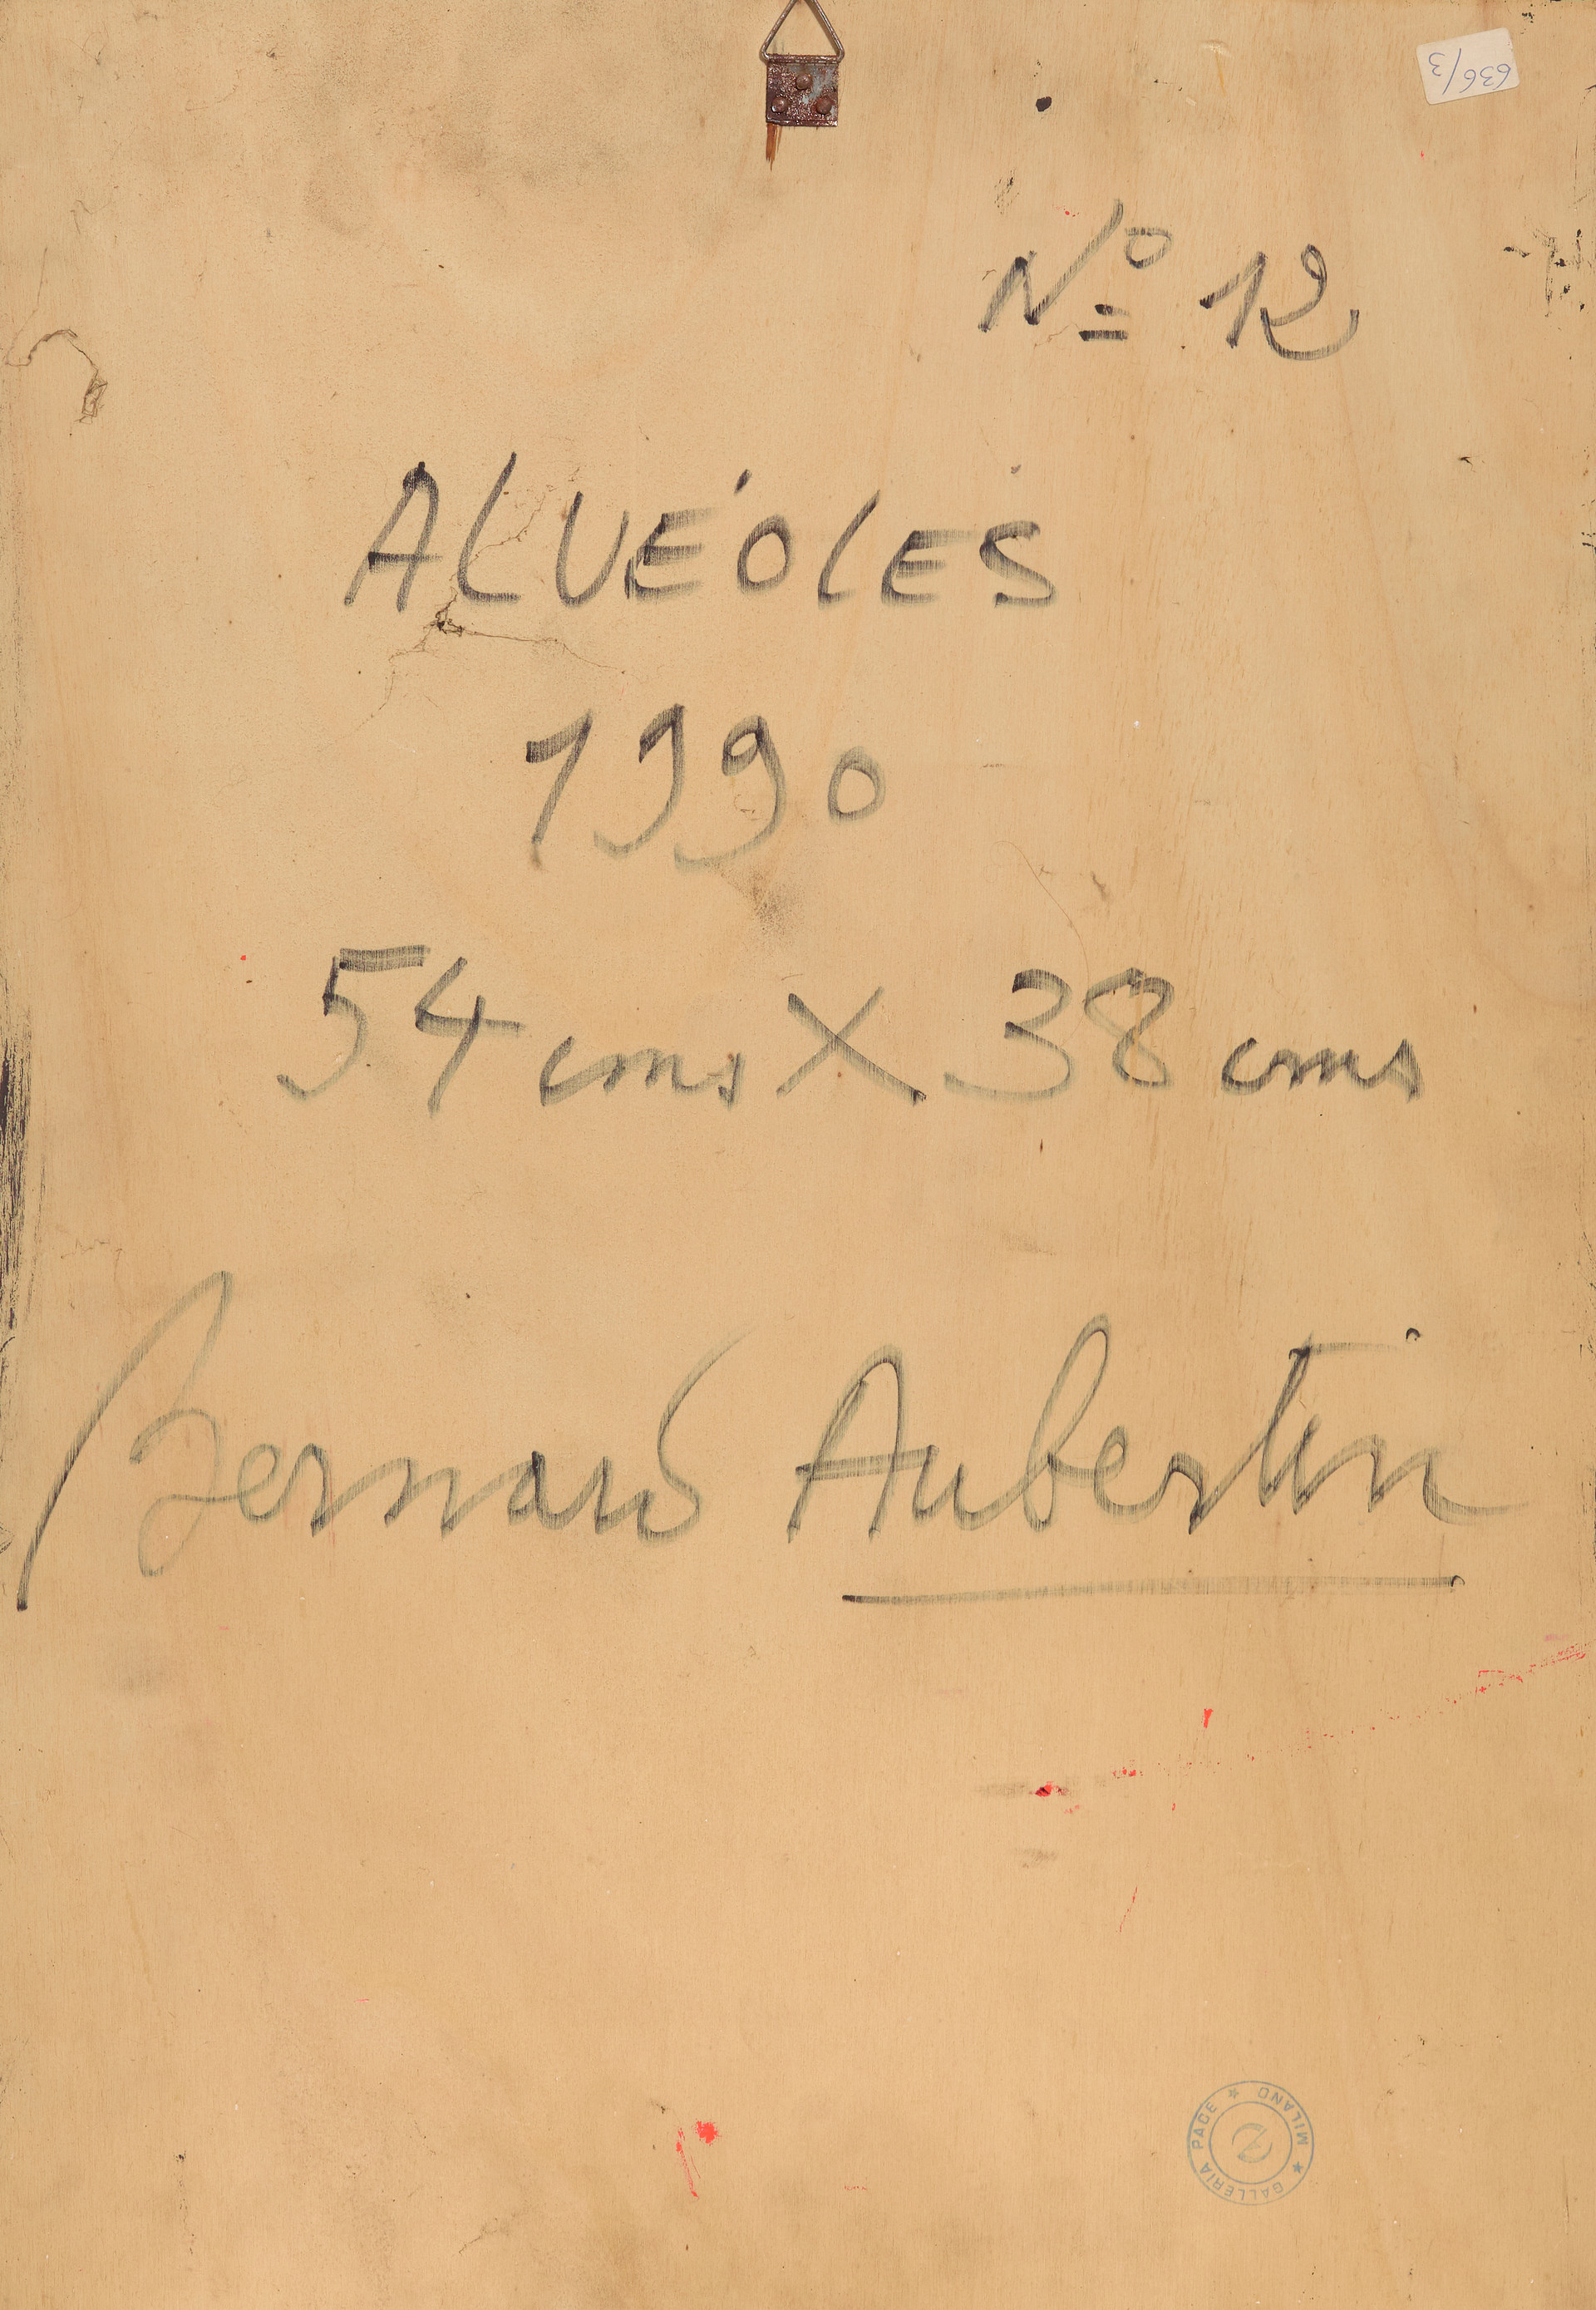 636/3
Nº 12
ALVÉOLES
1990
54 cms X 38 cms
Bernard Aubertin
GALLERIA PACE ★ MILANO ★